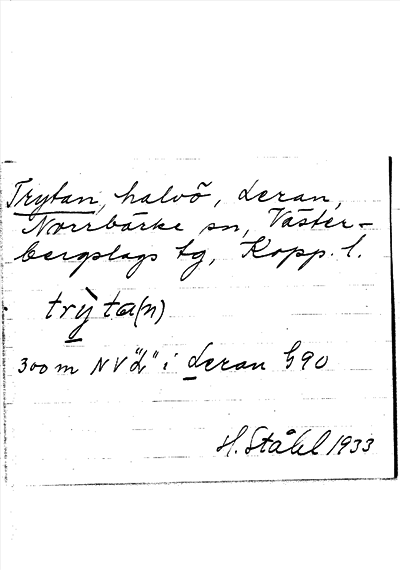 Trytan, halvö, Leran,
Norrbärke sn, Väster-
bergslags tg, Kopp. l.
trỳta(n)
300 m NV "L" i Leran G90
H. Ståhl 1933